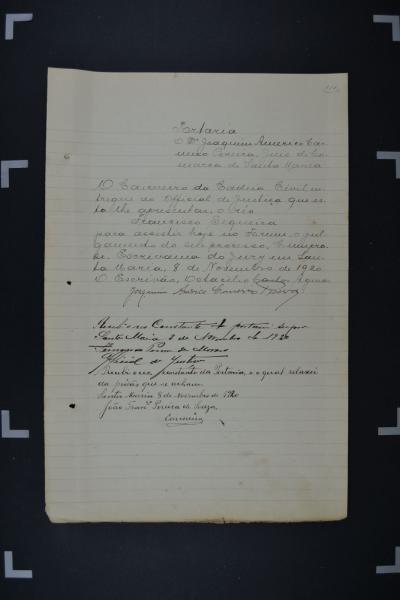 Portaria
O Dr. Joaquim Americo Car-
neiro Pereira, Juiz de Co-
marca de Santa Maria
O Carcereiro da Cadeia Civil en-
tregue ao Official de Justiça que es-
ta lhe apresentar, o réo
Francisco Siqueira
para assistir hoje no Forum, o jul-
gamento do seu processo. Cumpra-
se. Escrivania do Jury em San-
ta Maria, 8 de Novembro de 1920
O Escrivão,
Joaquim Americo Carneiro Pereira
Recebi o réo Constante
Santa Maria 8 de Novembro de 1920
Official de Justiça
Recebi o réo constante da Portaria, e o qual
da prisão que se achava.
Santa Maria 8 de Novembro de 1920
João Franco Pereira de Souza,
Carcereiro